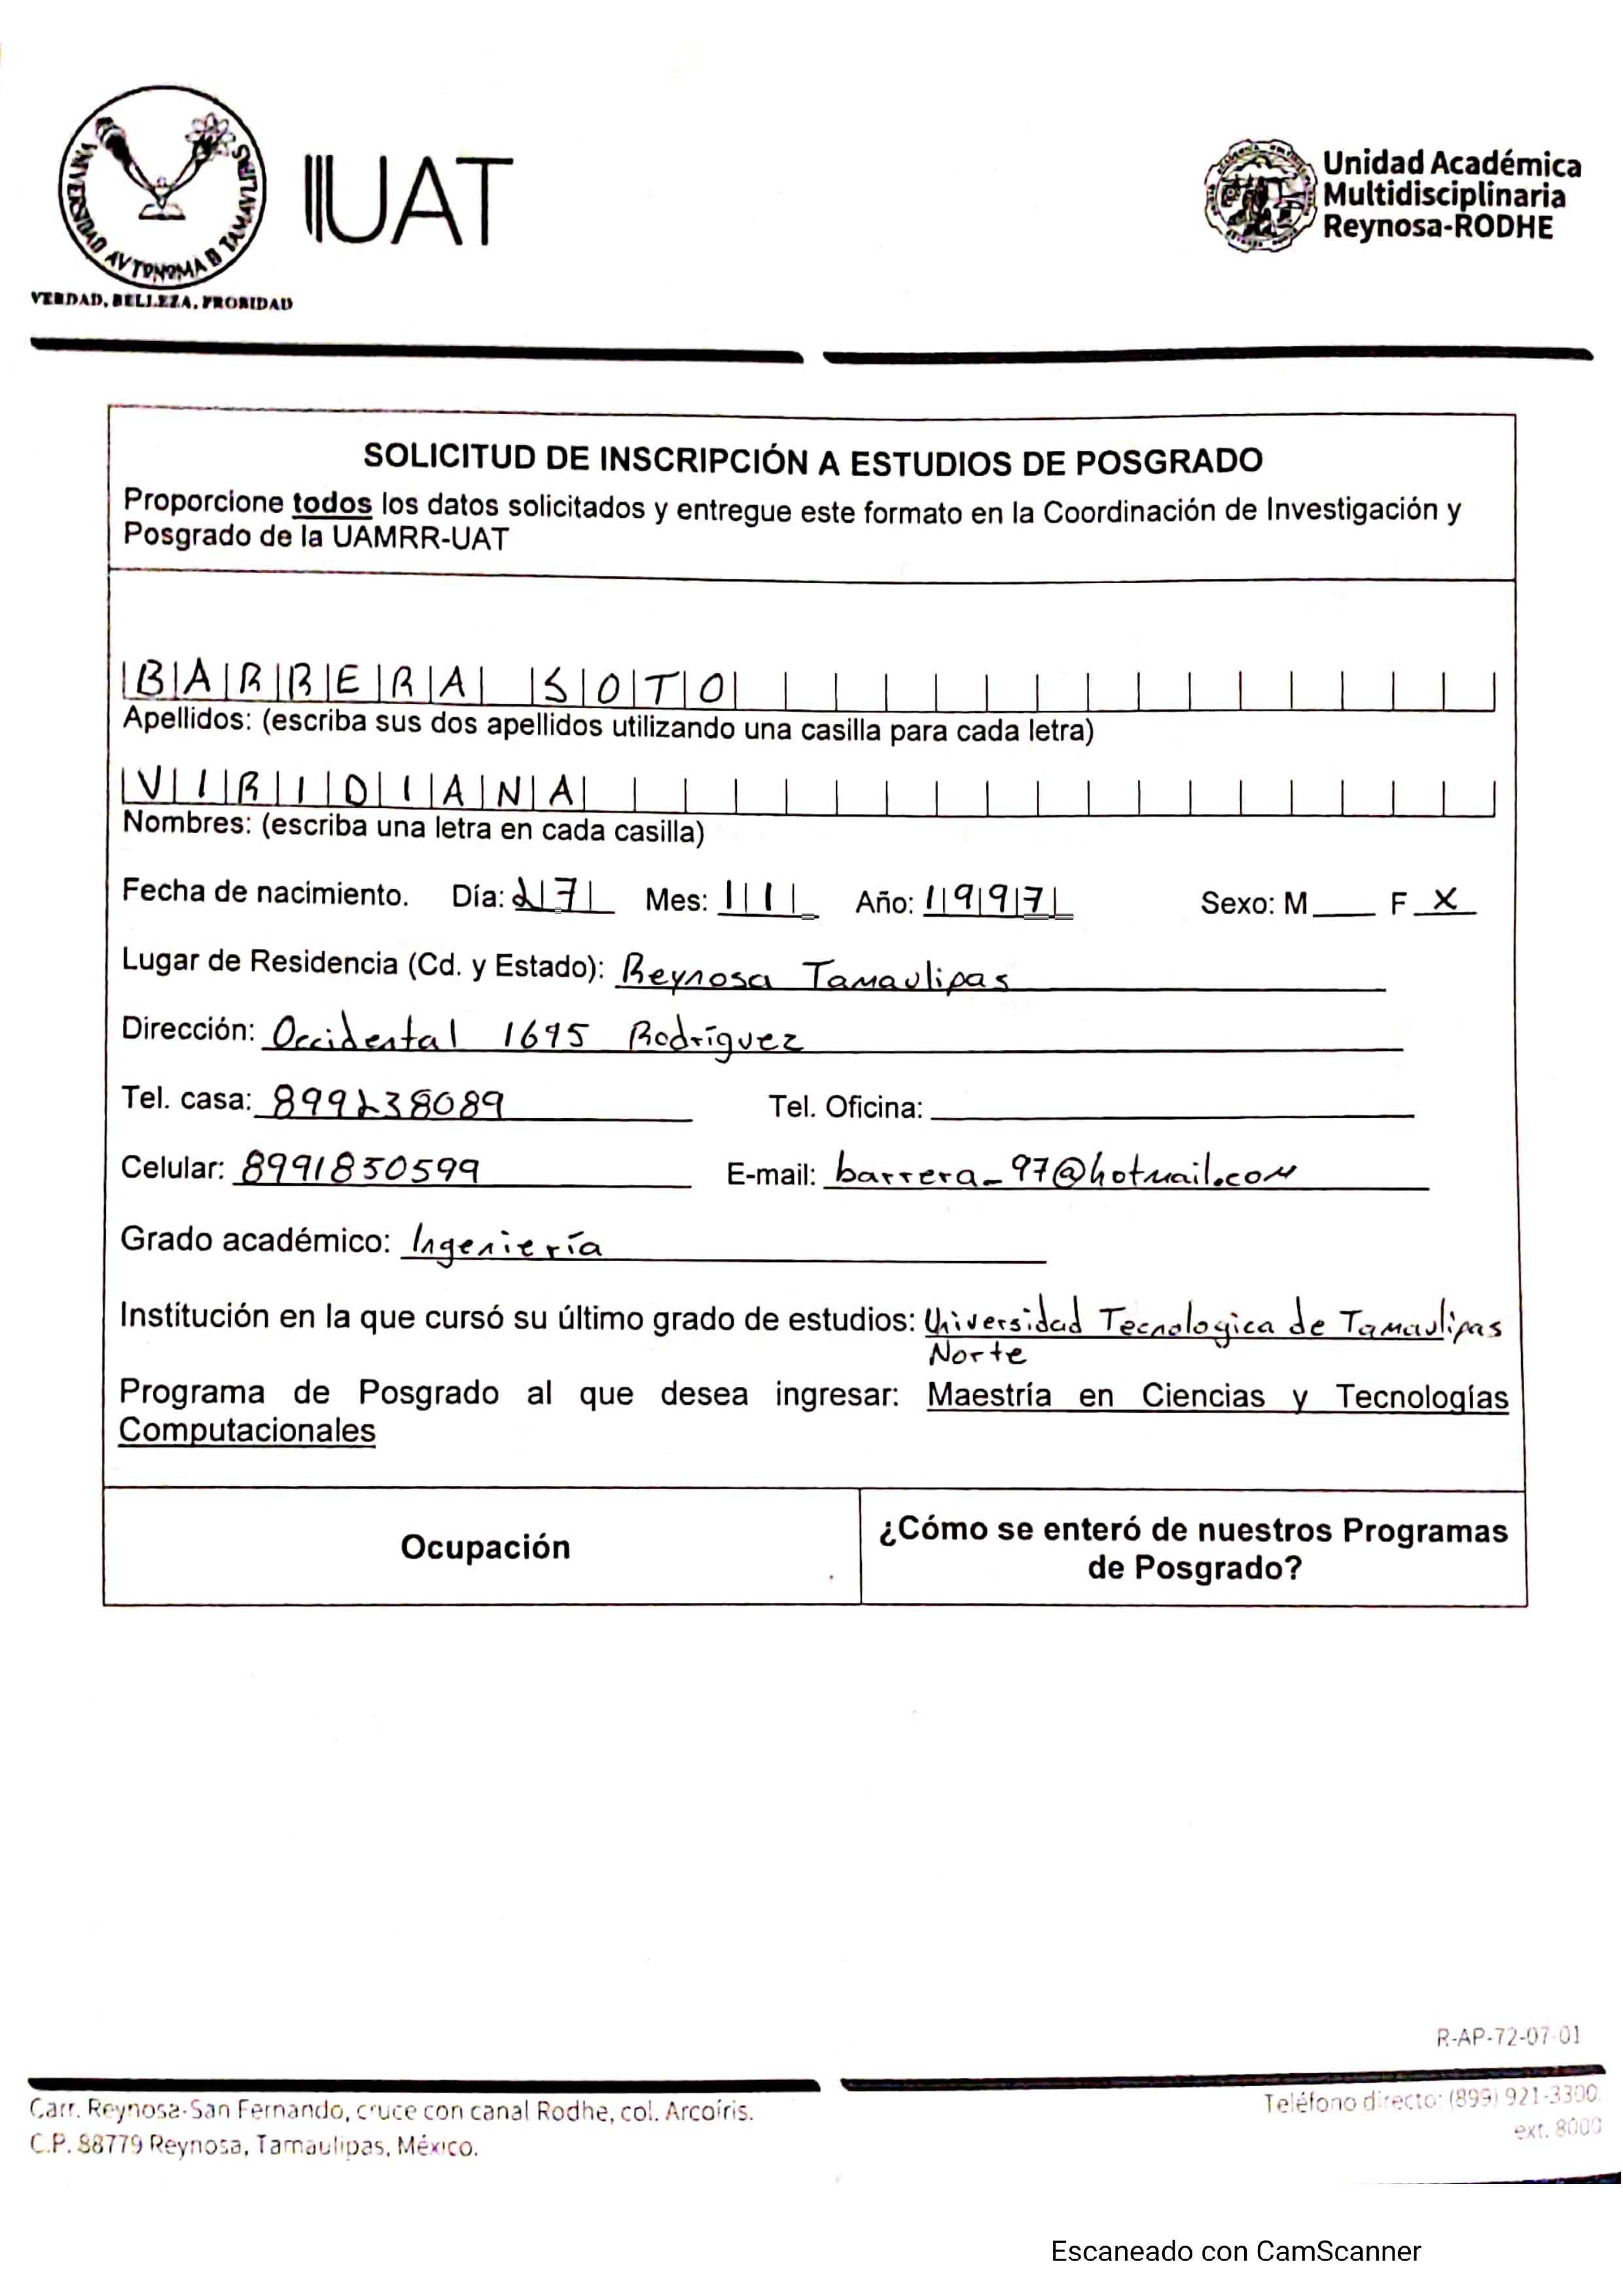 UNIVERSIDAD AVTONOMA D TAMAVLIPAS
VERDAD, BELLEZA, PROBIDAD
UAT
Unidad Académica
Multidisciplinaria
Reynosa-RODHE
SOLICITUD DE INSCRIPCIÓN A ESTUDIOS DE POSGRADO
Proporcione todos los datos solicitados y entregue este formato en la Coordinación de Investigación y
Posgrado de la UAMRR-UAT
BARRERA SOTO
Apellidos: (escriba sus dos apellidos utilizando una casilla para cada letra)
VIRIDIANA
Nombres: (escriba una letra en cada casilla)
Fecha de nacimiento. Día: 27 Mes: 11 Año: 1997 Sexo: M____ F X
Lugar de Residencia (Cd. y Estado): Reynosa Tamaulipas
Dirección: Occidental 1695 Rodríguez
Tel. casa: 899238089 Tel. Oficina:
Celular: 8991850599 E-mail: barrera_97@hotmail.com
Grado académico: Ingeniería
Institución en la que cursó su último grado de estudios: Universidad Tecnologica de Tamaulipas
Norte
Programa de Posgrado al que desea ingresar: Maestría en Ciencias y Tecnologías
Computacionales
Ocupación
¿Cómo se enteró de nuestros Programas
de Posgrado?
R-AP-72-07-01
Carr. Reynosa-San Fernando, cruce con canal Rodhe, col. Arcoíris.
C.P. 88779 Reynosa, Tamaulipas, México.
Teléfono directo: (899) 921-3300.
ext. 8000
Escaneado con CamScanner